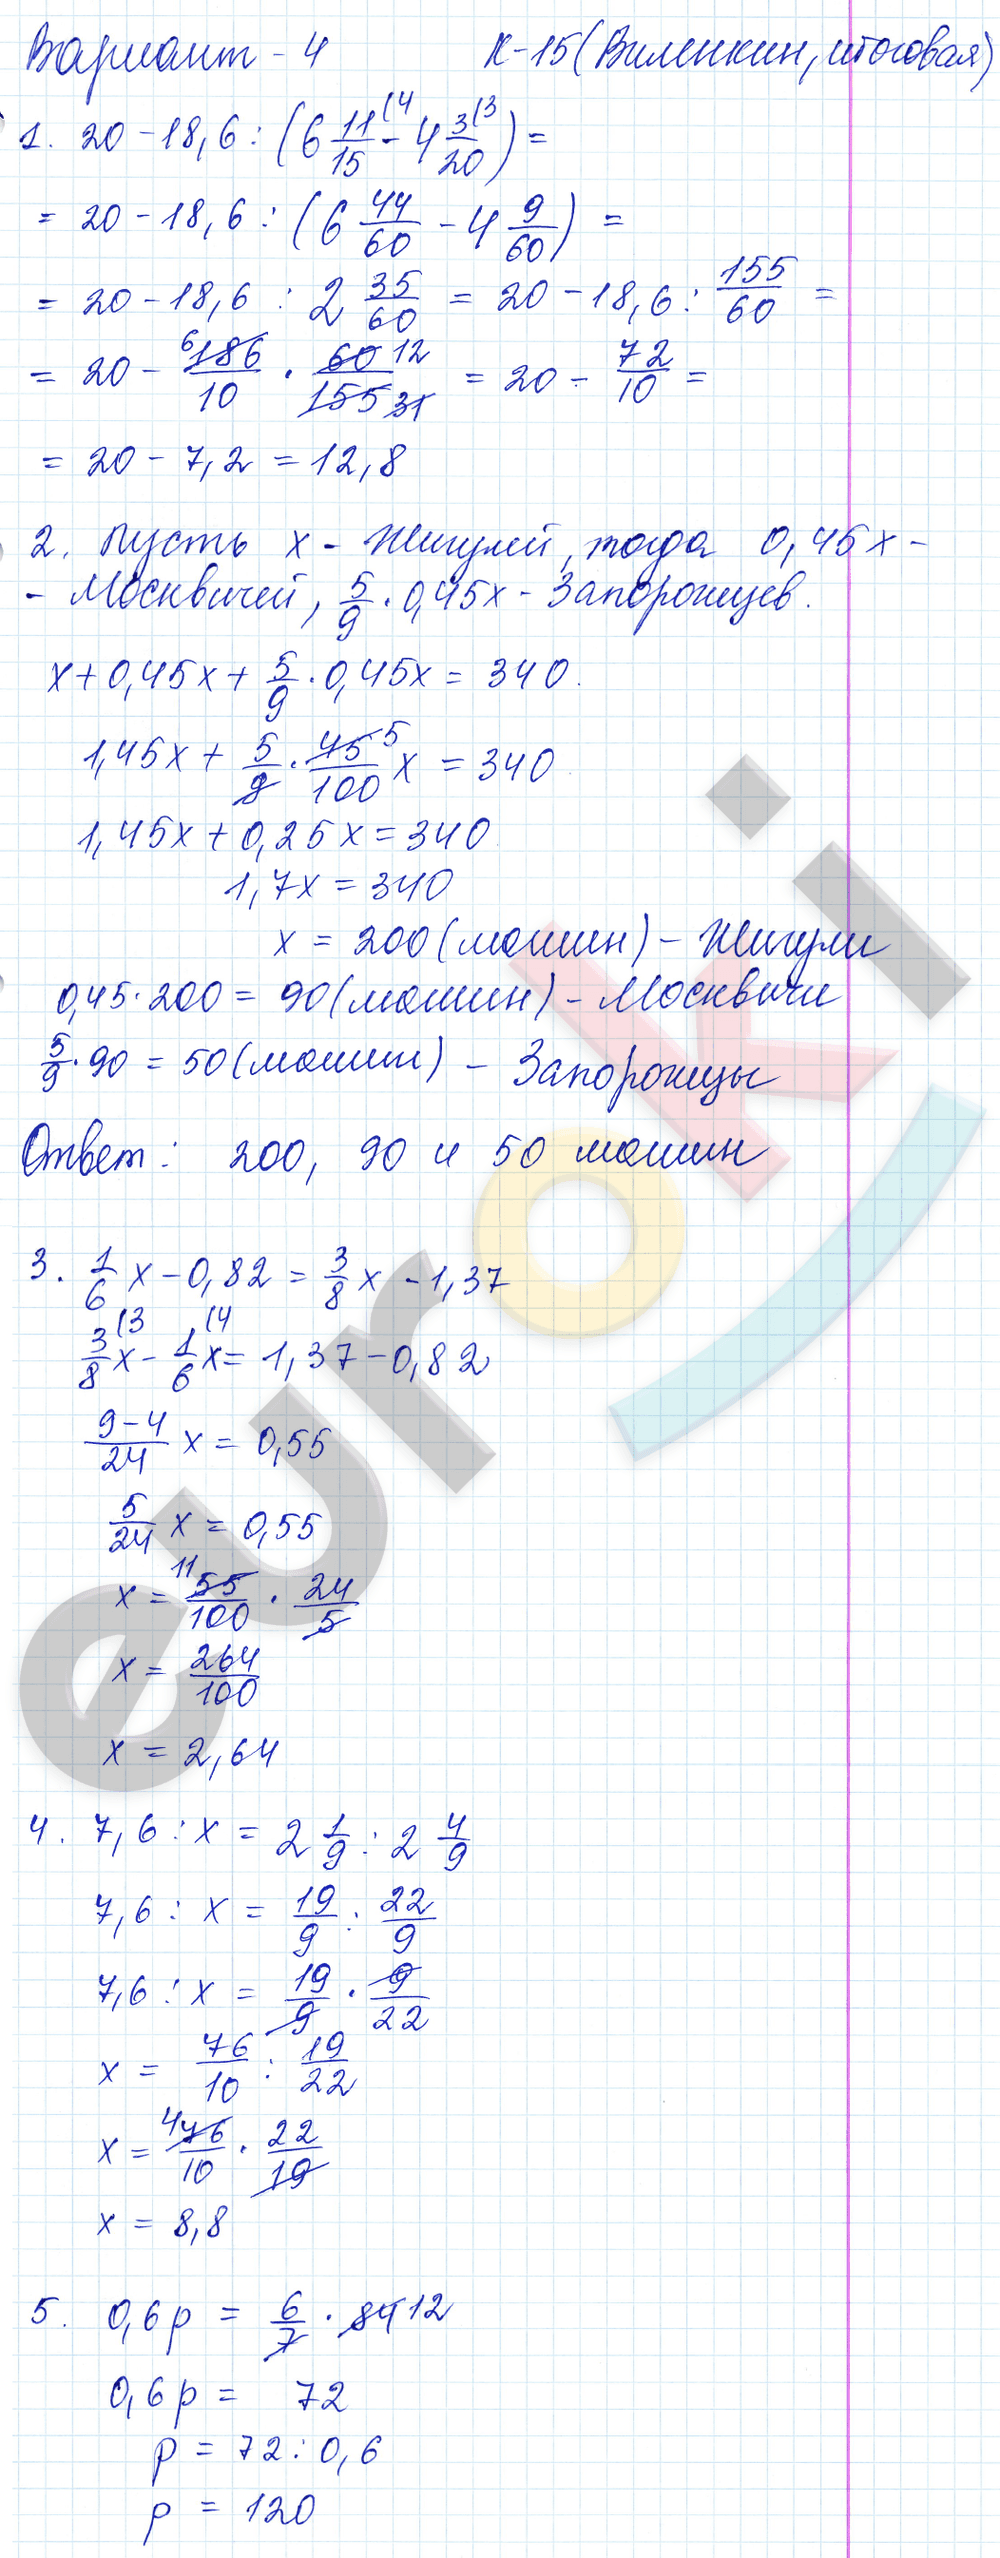 Вариант - 4 К-15 (Виленкин, итоговая)
1. 20 - 18,6 : (6 11/15 (4 - 4 3/20 (3 ) =
= 20 - 18,6 : (6 44/60 - 4 9/60) =
= 20 - 18,6 : 2 35/60 = 20 - 18,6 : 155/60 =
= 20 - 6 186/10 · 60 12/155 31 = 20 - 72/10 =
= 20 - 7,2 = 12,8
2. Пусть x - Жигулей, тогда 0,45x -
- Москвичей, 5/9 · 0,45x - Запорожцев.
x + 0,45x + 5/9 · 0,45x = 340.
1,45x + 5/9 · 45 5/100 x = 340
1,45x + 0,25x = 340
1,7x = 340
x = 200 (машин) - Жигули
0,45 · 200 = 90 (машин) - Москвичи
5/9 · 90 = 50 (машин) - Запорожцы
Ответ: 200, 90 и 50 машин
3. 1/6 x - 0,82 = 3/8 x - 1,37
3/8 (3 x - 1/6 (4 x = 1,37 - 0,82
9-4/24 x = 0,55
5/24 x = 0,55
x = 11 55/100 · 24/5
x = 264/100
x = 2,64
4. 7,6 : x = 2 1/9 : 2 4/9
7,6 : x = 19/9 : 22/9
7,6 : x = 19/9 · 9/22
x = 76/10 : 19/22
x = 4 76/10 · 22/19
x = 8,8
5. 0,6p = 6/7 · 84 12
0,6p = 72
p = 72 : 0,6
p = 120
euroki